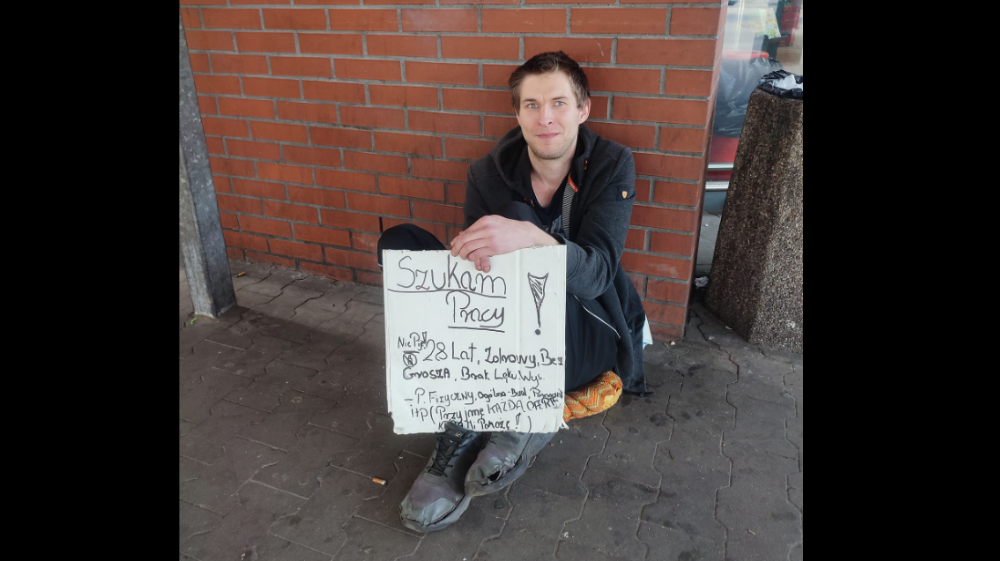 Szukam
Pracy !
Nie Piję
28 Lat, Zdrowy, Bez
Grosza, Brak Lęku Wys.
– P. Fizyczny, Ogólno-Bud,
itp (Przyjmę KAŻDĄ OFERTĘ
Pomoże! )